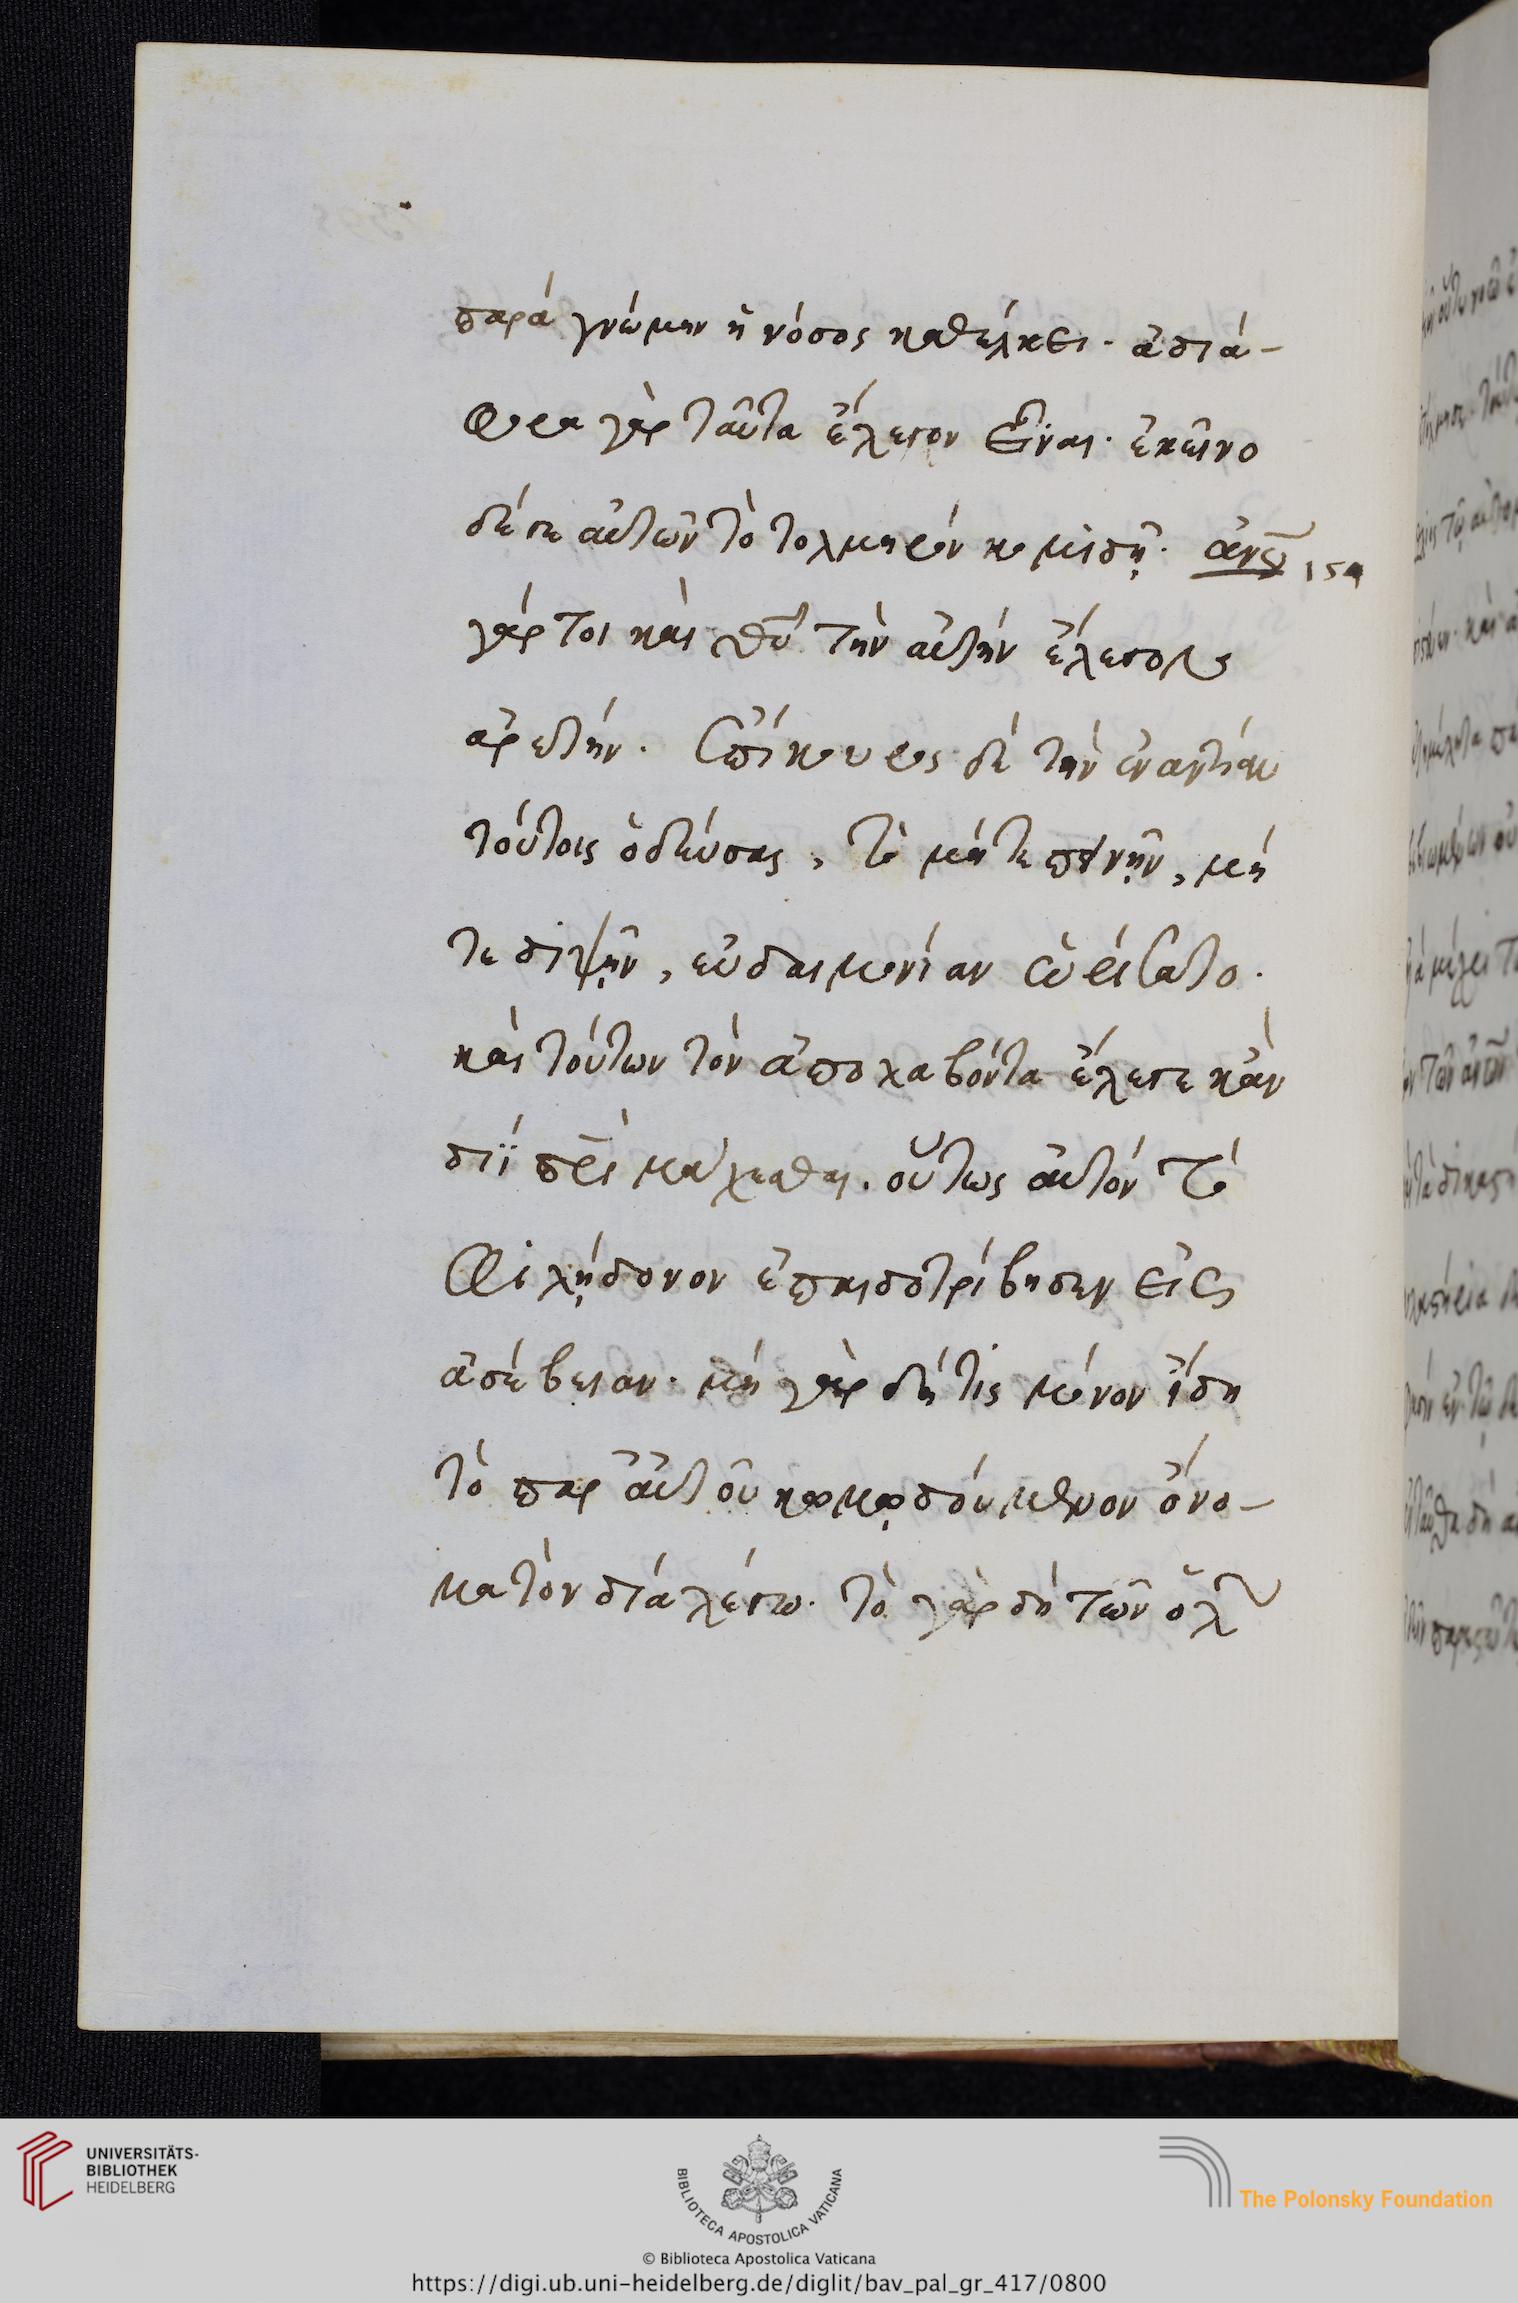 παρὰ γνώμην ἡ νόσος καθέλκει. ἀδιά-
φορα γὰρ ταῦτα ἔλεγον εἶναι. ἐκεῖνο
δέ γε αὐτῶν τὸ τολμηρὸν κομιδῇ. ἀνου
154
γάρ τοι καὶ θυ τὴν αὐτὴν ἔλεγον
ἀρετήν. Ἐπίκουρος δὲ τὴν ἐναντίαν
τούτοις ὁδεύσας, τὸ μήτε πεινῆν, μή
τε διψῆν, εὐδαιμονίαν ὡρίσατο.
καὶ τούτων τὸν ἀπολαβόντα ἔλεγε κἂν
διῒ πρὶ μάχεσθαι. οὕτως αὐτὸν τὸ
φιλήδονον ἐπαιδοτρίβησεν εἰς
ἀσέβειαν. μὴ γὰρ δή τις μόνον ἴδῃ
τὸ παρ αὐτοῦ κωμῳδούμενον ὄνο-
μα τὸν δία λέγω. τὸ γὰρ δὴ τῶν ὅλων
UNIVERSITÄTS-
BIBLIOTHEK
HEIDELBERG
BIBLIOTECA APOSTOLICA VATICANA
The Polonsky Foundation
© Biblioteca Apostolica Vaticana
https://digi.ub.uni-heidelberg.de/diglit/bav_pal_gr_417/0800